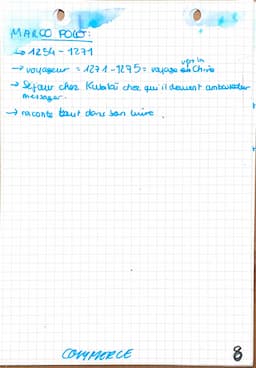 MARCO POLO:
↳ 1254 - 1271
→ voyageur = 1271 - 1275 = voyage vers la Chine
→ Séjour chez Kubilaï chez qui il devient ambassadeur
messager.
→ raconte tout dans son livre.
COMMERCE
8